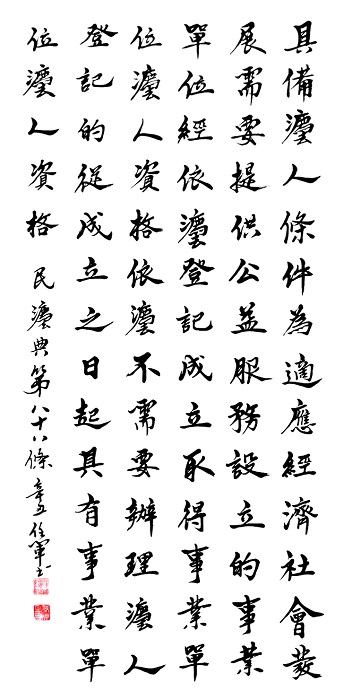 具備灋人條件為適應經濟社會發
展需要提供公益服務設立的事業
單位經依灋登記成立取得事業單
位灋人資格依灋不需要辦理灋人
登記的從成立之日起具有事業單
位灋人資格 民灋典第八十八條 辛丑任軍书